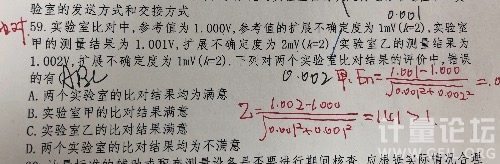 验室的发送方式和交接方式
0.001
比对
59.实验室比对中,参考值为 1.000V,参考值的扩展不确定度为 1mV(k=2),实验室
甲的测量结果为 1.001V,扩展不确定度为 2mV(k=2),实验室乙的测量结果为
1.002V,扩展不确定度为 1mV(k=2)。下列对两个实验室比对结果的评价中,错误
的有(ABC
0.002
甲. En=
1.001-1.000
√0.001²+0.002²
=.0
A. 两个实验室的比对结果均为满意
B. 实验室甲的比对结果满意
C. 实验室乙的比对结果满意
D. 两个实验室的比对结果均为不满意
Z=
1.002-1.000
√0.001²+0.001²
=1.41>1
计量论坛